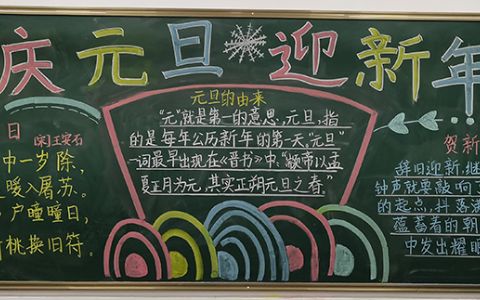 庆元旦迎新年
日
(宋)王安石
中一岁除,
暖入屠苏。
户曈曈日,
桃换旧符。
元旦的由来
"元"就是第一的意思,元旦,指
的是每年公历新年的第一天,"元旦"
一词最早出现在《晋书》中:"颛帝以孟
夏正月为元,其实正朔元旦之春."
贺新
辞旧迎新,继
钟声就要敲响了
的起点,抖落满
蕴蓄着的朝
中发出耀眼